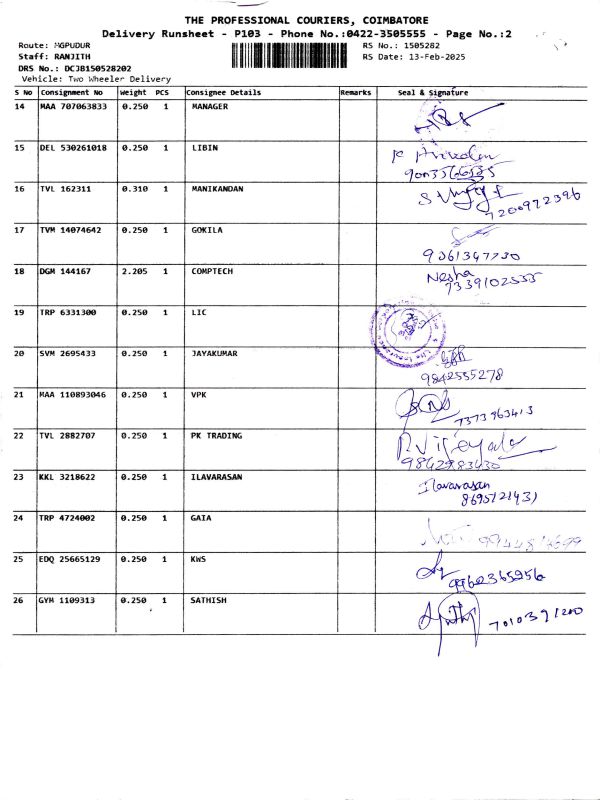 THE PROFESSIONAL COURIERS, COIMBATORE
Delivery Runsheet - P103 - Phone No.:0422-3505555 - Page No.:2
Route: MGPUDUR RS No.: 1505282
Staff: RANJITH RS Date: 13-Feb-2025
DRS No.: DCJB150528202
Vehicle: Two Wheeler Delivery
S No Consignment No Weight PCS Consignee Details Remarks Seal & Signature
14 MAA 707063833 0.250 1 MANAGER
15 DEL 530261018 0.250 1 LIBIN
16 TVL 162311 0.310 1 MANIKANDAN
7200972396
17 TVM 14074642 0.250 1 GOKILA
9361347730
18 DGM 144167 2.205 1 COMPTECH Nesha
7339102555
19 TRP 6331300 0.250 1 LIC
20 SVM 2695433 0.250 1 JAYAKUMAR
9842555278
21 MAA 110893046 0.250 1 VPK
7373963413
22 TVL 2882707 0.250 1 PK TRADING
9842983430
23 KKL 3218622 0.250 1 ILAVARASAN Ilavarasan
8695121431
24 TRP 4724002 0.250 1 GAIA
25 EDQ 25665129 0.250 1 KWS
9962365956
26 GYM 1109313 0.250 1 SATHISH
7010391200